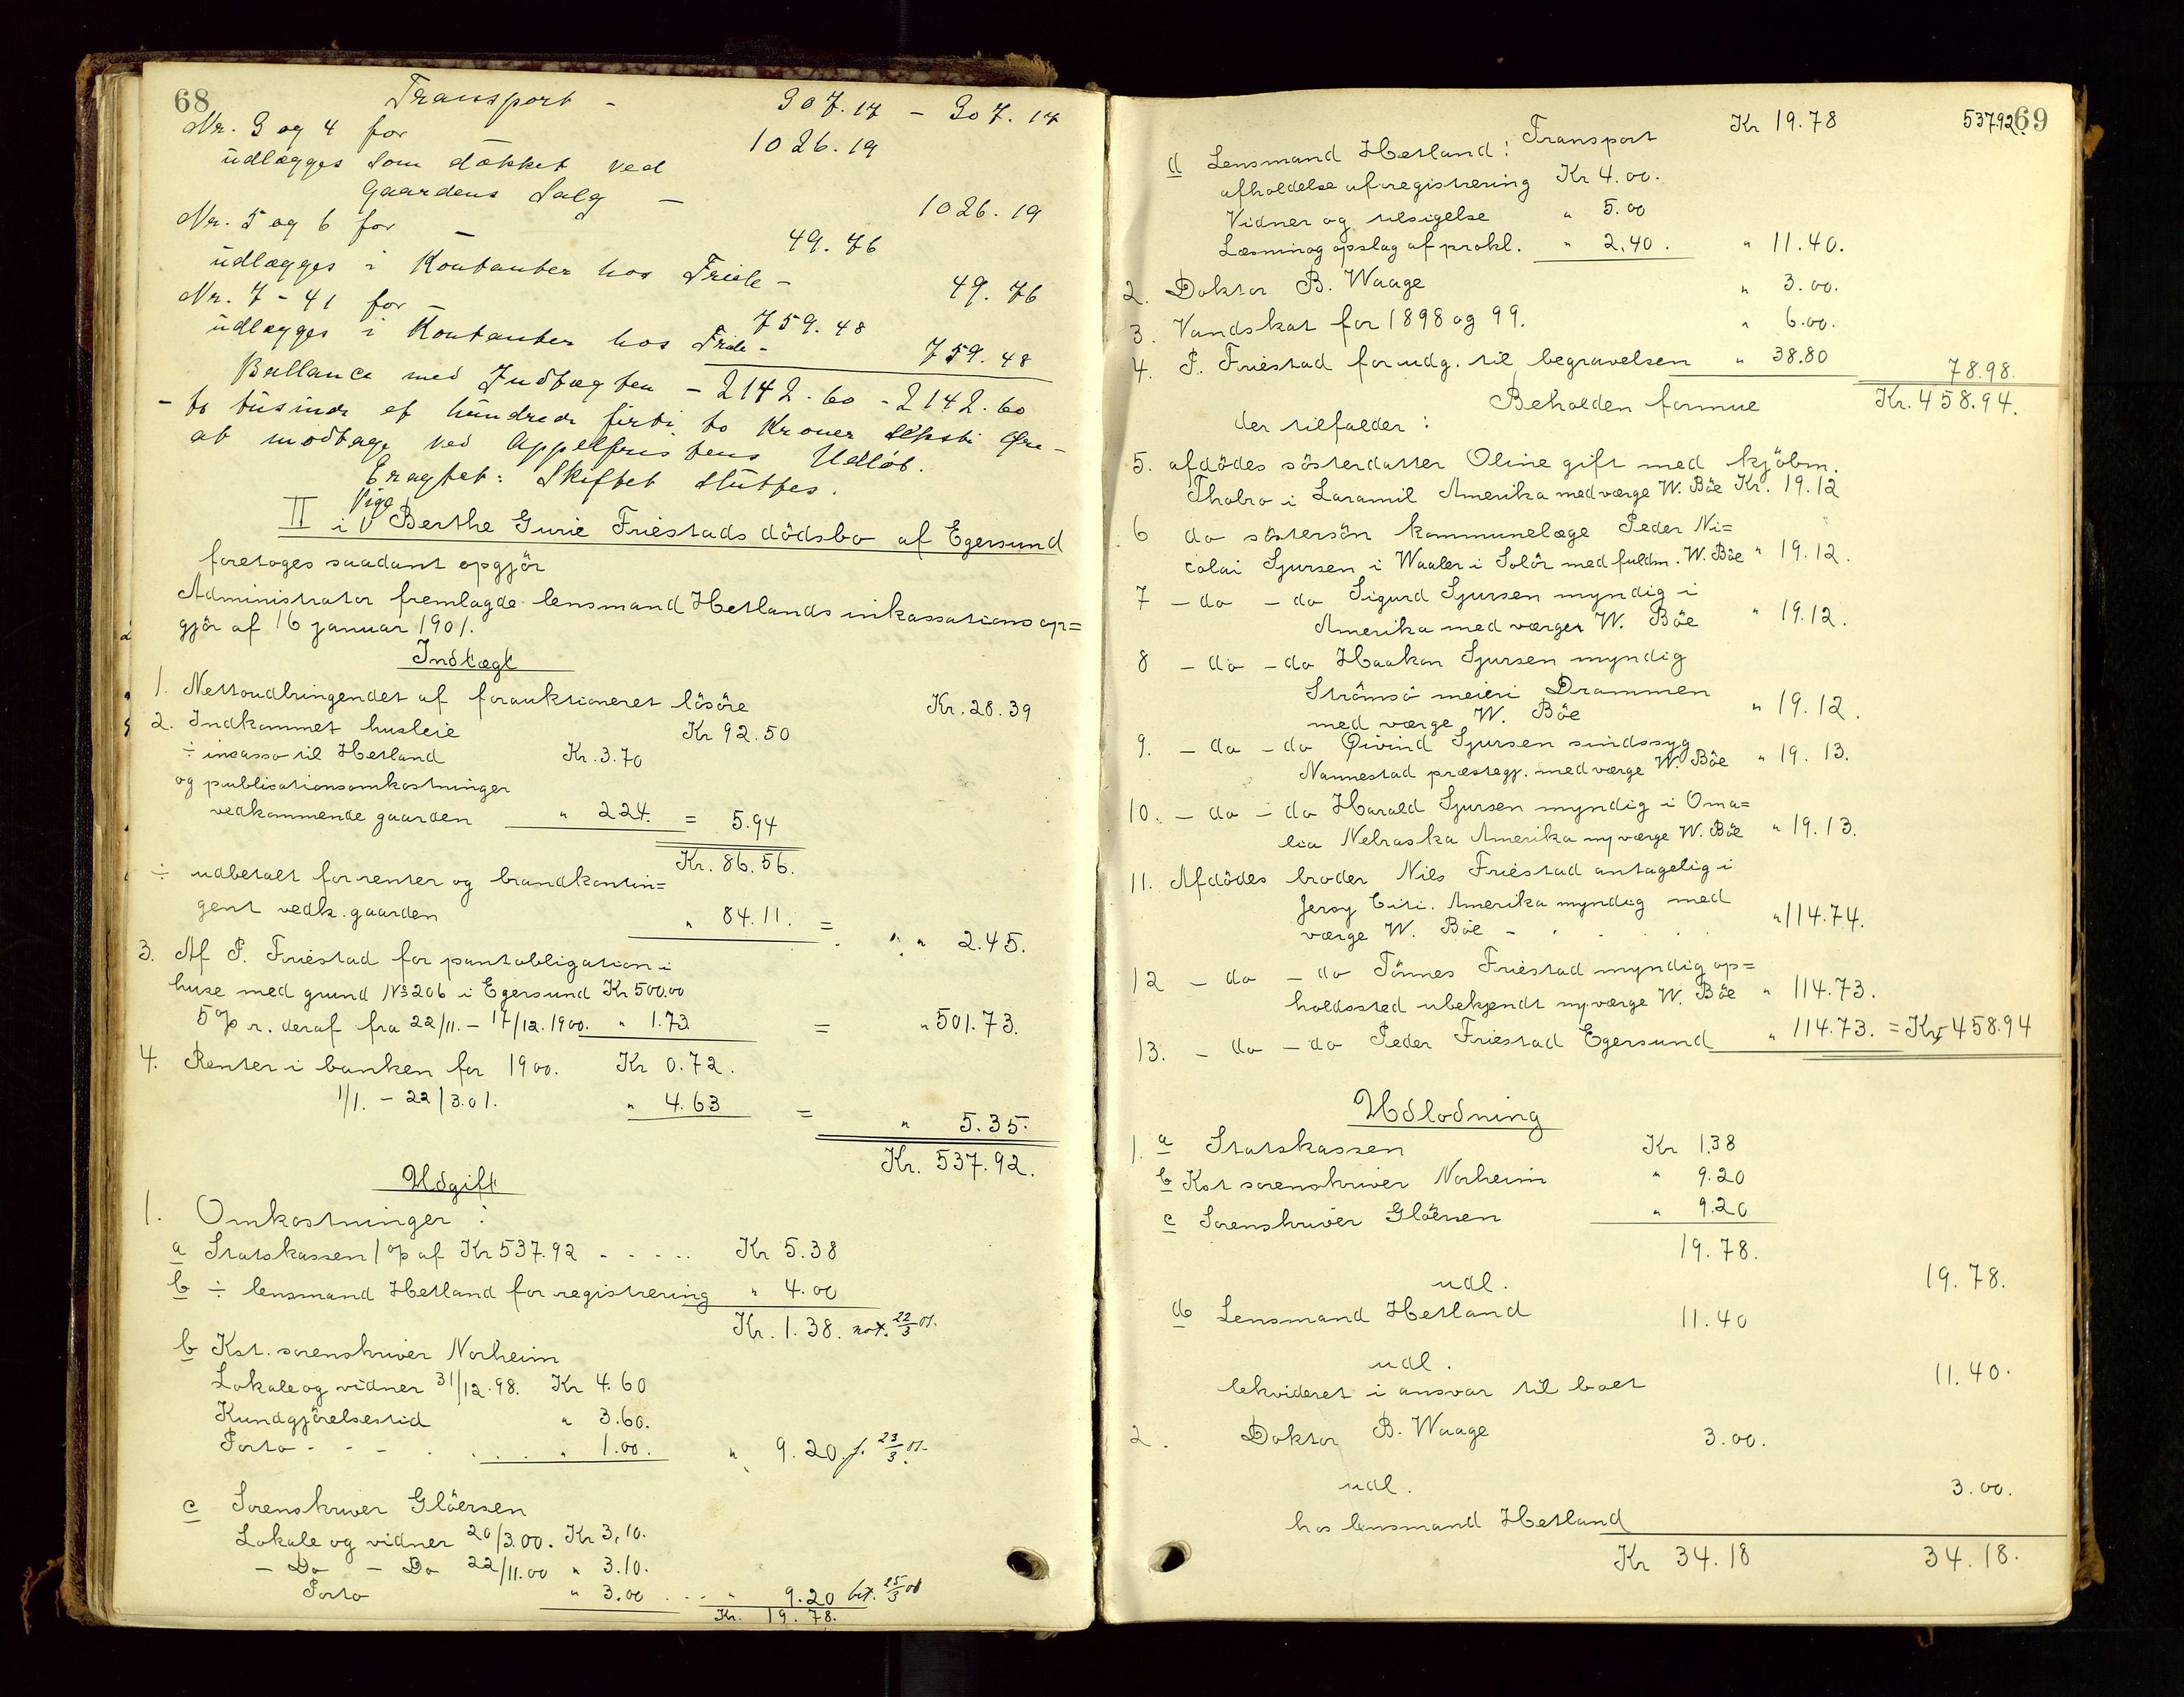 68
Transport - 307.17 - 307.17
Nr. 3 og 4 for 1026.19
udlægges som dækket ved
Gaardens Salg - 1026.19
Nr. 5 og 6 for - 49.76
udlægges i Kontanter hos Friele - 49.76
Nr. 7 - 41 for - 759.48
udlægges i Kontanter hos Friele - 759.48
Ballance med Indtægten - 2142.60 - 2142.60
- to tusinde et hundrede firti to Kroner seksti Øre -
at modtage ved Appelfristens Udløb.
Eragtet: Skiftet sluttes.
II i Pige Berthe Gurie Friestads dödsbo af Egersund
foretoges saadant opgjör
Administrator fremlagde lensmand Hetlands inkassationsop=
gjör af 16 januar 1901.
Indtægt
1. Nettoudbringendet af forauktioneret lösöre Kr. 28.39
2. Indkommet husleie Kr 92.50
÷ incasso til Hetland Kr. 3.70
og publicationsomkostninger
vedkommende gaarden " 2.24. = 5.94
Kr. 86.56.
÷ udbetalt for renter og brandkontin=
gent vedk. gaarden " 84.11. = " " 2.45.
3. Af P. Friestad for pantobligation i
huse med grund No 206 i Egersund Kr 500.00
5 % r. deraf fra 22/11. - 17/12. 1900. " 1.73. = " 501.73.
4. Renter i banken for 1900. Kr 0.72.
1/1. - 22/3.01. " 4.63 = " 5.35.
Kr. 537.92.
Udgift
1. Omkostninger :
a Statskassen 1 % af Kr 537.92 . - . . . Kr 5.38
b ÷ lensmand Hetland for registrering " 4.00
Kr. 1.38. not. 22/3 01.
b Kst. sorenskriver Norheim
Lokale og vidner 31/12.98. Kr 4.60
Kundgjörelsestid " 3.60.
Porto - - - . . . . " 1.00. " 9.20 f. 23/3 01.
c Sorenskriver Glöersen
Lokale og vidner 20/3.00. Kr 3,10.
- Do - Do 22/11.00 " 3.10.
Porto " 3.00 . . . " 9.20 bet. 25/3 01
Kr. 19.78.
69
Transport Kr 19.78 537.92.
d Lensmand Hetland:
afholdelse af registrering Kr 4.00.
Vidner og tilsigelse " 5.00
Læsning og opslag af prokl. " 2.40. " 11.40.
2. Doktor B. Waage " 3.00.
3. Vandskat for 1898 og 99. " 6.00.
4. P. Friestad for udg. til begravelsen " 38.80 78.98.
Beholden formue Kr. 458.94.
der tilfalder :
5. afdödes sösterdatter Oline gift med kjöbm.
Tholro i Laramil Amerika med værge W. Böe Kr. 19.12
6 do söstersön kommunelæge Peder Ni=
colai Sjursen i Waaler i Solör med fuldm. W. Böe " 19.12.
7 - do - do Sigurd Sjursen myndig i
Amerika med værge W. Böe " 19.12.
8 - do - do Haakon Sjursen myndig
Strömsö meieri Drammen
med værge W. Böe " 19.12.
9. - do - do Øivind Sjursen sindssyg
Nannestad præstegj. med værge W. Böe " 19.13.
10. - do - do Harald Sjursen myndig i Oma=
lia Nebraska Amerika m/værge W. Böe " 19.13.
11. Afdödes broder Niels Friestad antagelig i
Jersy Citi. Amerika myndig med
værge W. Böe - . - . " 114.74.
12 - do - do Tönnes Friestad myndig op=
holdssted ubekjendt m/værge W. Böe " 114.73.
13. - do - do Peder Friestad Egersund " 114.73. = Kr. 458.94
Udlodning
1. a Statskassen Kr 1.38
b Kst sorenskriver Norheim " 9.20
c Sorenskriver Glöersen " 9.20
19.78.
udl. 19.78.
d Lensmand Hetland 11.40
udl. 11.40.
lekvideret i ansvar til boet
2. Doktor B. Waage 3.00.
udl. 3.00.
hos lensmand Hetland
Kr 34.18 34.18.